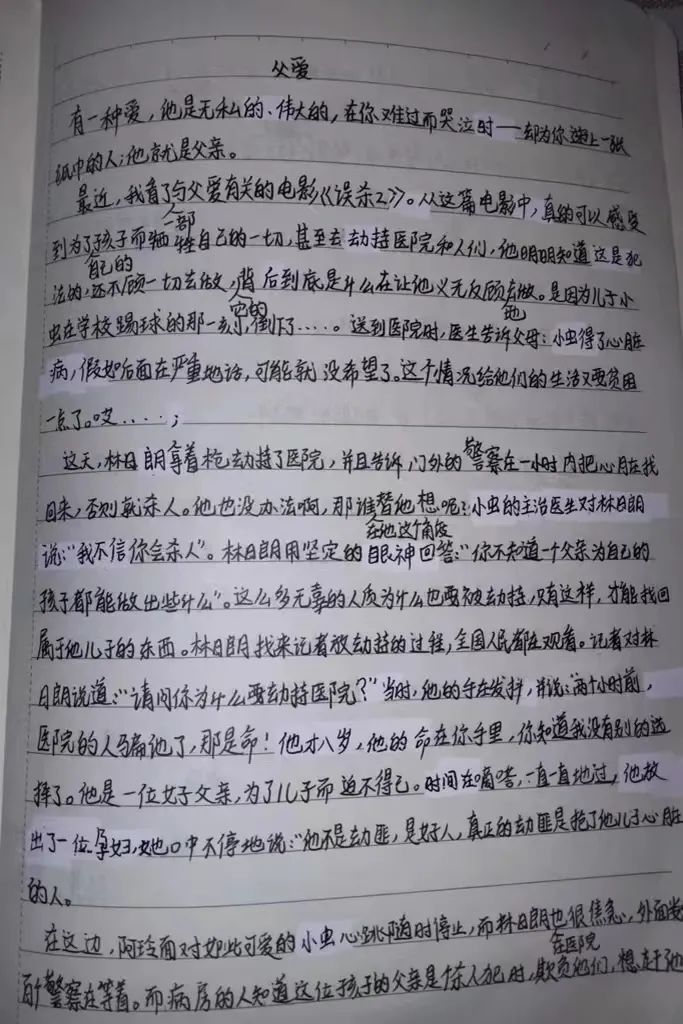 父爱
有一种爱，他是无私的、伟大的，在你难过而哭泣时——却为你递上一张
纸巾的人；他就是父亲。
最近，我看了与父爱有关的电影《误杀2》。从这篇电影中，真的可以感受
一部
到为了孩子而牺牲自己的一切，甚至去劫持医院和人们，他明明知道这是犯
自己的
法的，还不顾一切去做，背后到底是什么在让他义无反顾去做。是因为儿子小
它的 地
虫在学校踢球的那一刻，倒下了……。送到医院时，医生告诉父母：小虫得了心脏
病，假如后面在严重地话，可能就没希望了。这个情况给他们的生活又要贫困
一点了。哎……；
这天，林日朗拿着枪去劫持了医院，并且告诉门外的警察在一小时内把心脏找
回来，否则就杀人。他也没办法啊，那谁替他想呢？小虫的主治医生对林日朗
在他这个角度
说：“我不信你会杀人”。林日朗用坚定的眼神回答：“你不知道一个父亲为自己的
孩子都能做出些什么”。这么多无辜的人质为什么也要被劫持，只有这样，才能找回
属于他儿子的东西。林日朗找来记者放劫持的过程，全国人民都在观看。记者对林
日朗说道：“请问你为什么要劫持医院？”当时，他的手在发抖，并说：“两个小时前，
医院的人骗他了，那是命！他才八岁，他的命在你手里，你知道我没有别的选
择了。他是一位好父亲，为了儿子而迫不得已。时间在嘀嗒，一直一直地过，他放
出了一位孕妇，她口中不停地说：“他不是劫匪，是好人，真正的劫匪是抢了他儿子心脏
的人。
在这边，阿玲面对如此可爱的小虫心跳随时停止，而林日朗也很焦急，外面数
在医院
百个警察在等着。而病房的人知道这位孩子的父亲是个杀人犯时，欺负他们，想